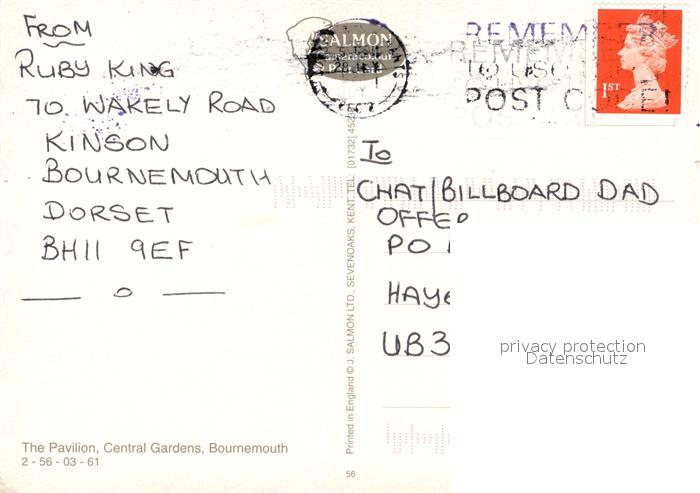 FROM
RUBY KING
70 WAKELY ROAD
KINSON
BOURNEMOUTH
DORSET
BH11 9EF
SALMON
REMEMBER
REMEMBER
TO USE
POST CODE!
1ST
To
CHAT/BILLBOARD DAD
OFFER
PO
HAYE
UB3
privacy protection
Datenschutz
Printed in England © J. SALMON LTD., SEVENOAKS, KENT. TEL: (01732) 452
The Pavilion, Central Gardens, Bournemouth
2 - 56 - 03 - 61
56